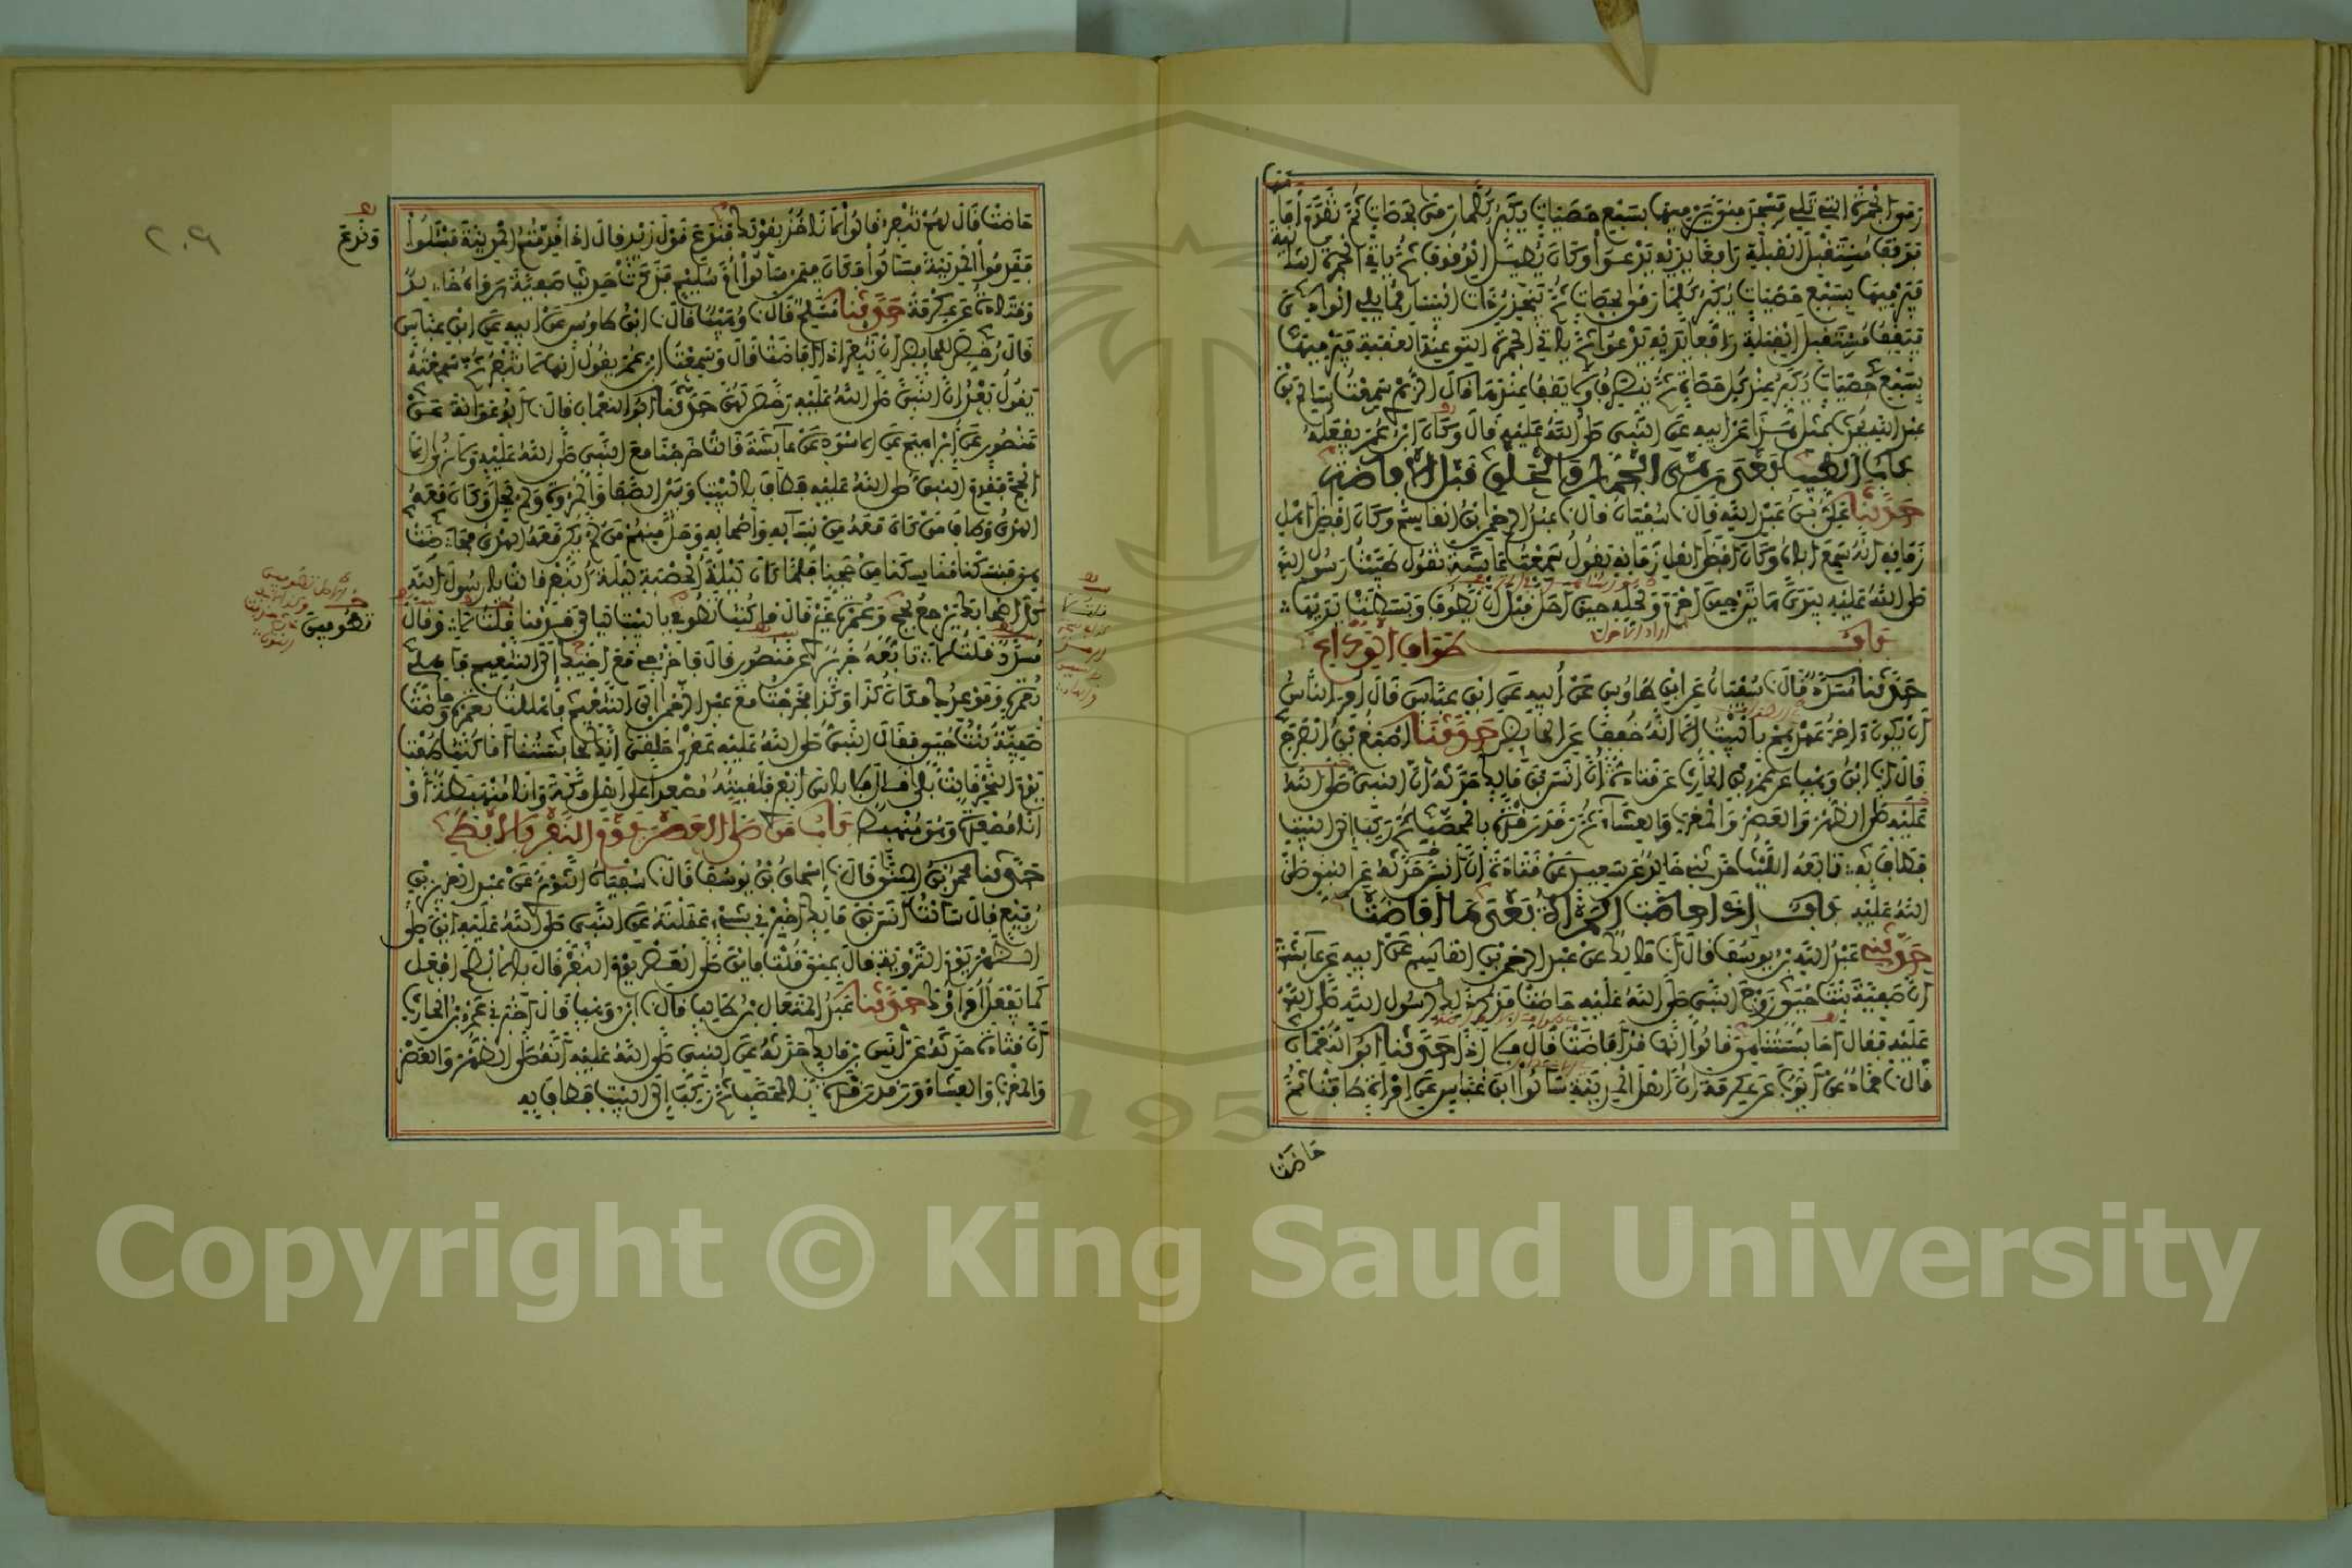 رمى الجمرة التي تلي مسجد منى يرميها بسبع حصيات يكبر كلما رمى بحصاة ثم تقدم أمامها
فوقف مستقبل القبلة رافعا يديه يدعو وكان يطيل الوقوف ثم ياتي الجمرة الثانية
فيرميها بسبع حصيات يكبر كلما رمى بحصاة ثم ينحدر ذات اليسار مما يلي الوادي
فيقف مستقبل القبلة رافعا يديه يدعو ثم ياتي الجمرة التي عند العقبة فيرميها
بسبع حصيات يكبر عند كل حصاة ثم ينصرف ولا يقف عندها قال الزهري سمعت سالم بن
عبد الله يحدث بمثل هذا عن ابيه عن النبي صلى الله عليه قال وكان ابن عمر يفعله
باب الطيب بعد رمي الجمار والحلق قبل الافاضة
حدثنا علي بن عبد الله قال نا سفيان قال نا عبد الرحمن بن القاسم وكان افضل اهل
زمانه انه سمع اباه وكان افضل اهل زمانه يقول سمعت عائشة تقول طيبت رسول الله
صلى الله عليه بيدي هاتين حين احرم ولحله حين احل قبل ان يطوف وبسطت يديها
باب طواف الوداع
حدثنا مسدد قال نا سفيان عن ابن طاوس عن أبيه عن ابن عباس قال أمر الناس
أن يكون اخر عهدهم بالبيت الا انه خفف عن الحائض حدثنا اصبغ بن الفرج
قال انا ابن وهب عن عمرو بن الحارث عن قتادة أن انس بن مالك حدثه ان النبي صلى الله
عليه صلى الظهر والعصر والمغرب والعشاء ثم رقد رقدة بالمحصب ثم ركب الى البيت
فطاف به تابعه الليث حدثني خالد عن سعيد عن قتادة ان انس حدثه عن النبي صلى
الله عليه باب اذا حاضت المرأة بعد ما افاضت
حدثنا عبد الله بن يوسف قال انا مالك عن عبد الرحمن بن القاسم عن ابيه عن عائشة
أن صفية بنت حيي زوج النبي صلى الله عليه حاضت فذكرت ذلك لرسول الله صلى الله
عليه فقال أحابستنا هي قالوا انها قد أفاضت قال فلا اذا حدثنا ابو النعمان
قال نا حماد عن أيوب عن عكرمة أن أهل المدينة سألوا ابن عباس عن امرأة طافت ثم
حاضت
٢٠٩
حاضت قال لهم تنفر قالوا لا ناخذ بقولك وندع قول زيد قال اذا قدمتم المدينة فسلوا
وندع
فقدموا المدينة فسألوا فكان فيمن سألوا أم سليم فذكرت حديث صفية رواه خالد
وقتادة عن عكرمة حدثنا مسلم قال نا وهيب قال نا ابن طاوس عن ابيه عن ابن عباس
قال رخص للحائض أن تنفر اذا افاضت قال وسمعت ابن عمر يقول انها لا تنفر ثم سمعته
يقول بعد ان النبي صلى الله عليه رخص لهن حدثنا ابو النعمان قال نا ابو عوانة عن
منصور عن إبراهيم عن الاسود عن عائشة قالت خرجنا مع النبي صلى الله عليه ولا نرى الا
الحج فقدم النبي صلى الله عليه فطاف بالبيت وبين الصفا والمروة ولم يحل وكان معه
الهدي وطاف من كان معه من نسائه واصحابه وحل منهم من لم يكن معه الهدي فحاضت
هي فنسكنا مناسكنا من حجنا فلما كان ليلة الحصبة ليلة النفر قالت يا رسول الله
كل اصحابك يرجع بحج وعمرة غيري قال ما كنت تطوفي بالبيت ليالي قدمنا قلت لا وقال
تطوفين
مسدد قلت لا تابعه جرير عن منصور قال فاخرجي مع اخيك الى التنعيم فاهلي
بعمرة وموعدك مكان كذا وكذا فخرجت مع عبد الرحمن الى التنعيم فاهللت بعمرة وحاضت
صفية بنت حيي فقال النبي صلى الله عليه عقرى حلقى انك لحابستنا أما كنت طفت
يوم النحر قالت بلى قال فلا باس انفري فلقيته مصعدا على اهل مكة وانا منهبطة أو
انا مصعدة وهو منهبط باب من صلى العصر يوم النفر بالابطح
حدثنا محمد بن المثنى قال نا إسحاق بن يوسف قال نا سفيان الثوري عن عبد العزيز بن
رفيع قال سألت انس بن مالك أخبرني بشيء عقلته عن النبي صلى الله عليه اين صلى
الظهر يوم التروية قال بمنى قلت فاين صلى العصر يوم النفر قال بالابطح افعل
كما يفعل أمراؤك حدثنا عبد المتعال بن طالب قال نا ابن وهب قال أخبرني عمرو بن الحارث
أن قتادة حدثه عن انس بن مالك حدثه عن النبي صلى الله عليه أنه صلى الظهر والعصر
والمغرب والعشاء ورقد رقدة بالمحصب ثم ركب إلى البيت فطاف به
Copyright © King Saud University
1957